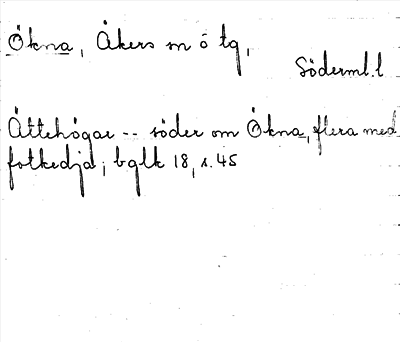 Ökna, Åkers sn ö tg,
Söderml. l
Ättehögar -- söder om Ökna, flera med
fotkedja; bglk 18, s. 45